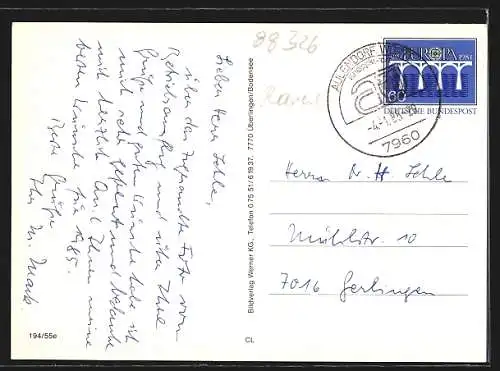 88 326
Lieber Herr Lehle,
über das zugesandte Foto vom
Betriebsausflug und über Ihre
Grüße und guten Wünsche habe ich
mich sehr gefreut und bedanke
mich herzlich. Auch Ihnen meine
besten Wünsche für 85.
Beste Grüße
Ihr M.
194/55e
Bildverlag Werner KG., Telefon 0 75 51/6 19 37, 7770 Überlingen/Bodensee
CL
AULENDORF
-4.-1.85
7960
EUROPA
1984
60
DEUTSCHE BUNDESPOST
Herrn H. Lehle
Mühlstr. 10
7016 Gerlingen